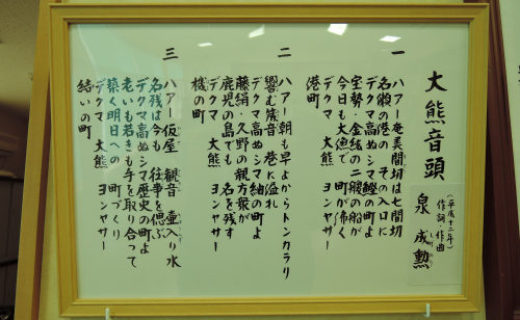 大熊音頭
(平成十二年)
作詞・作曲
泉 成勲
一
ハアー奄美間切は七間切
名瀬の港の その入口に
デクマ高ぬシマ鰹の町よ
宝勢・金紘の二艘の船が
今日も大漁で 町が沸く
デクマ 大熊 ヨンヤサー
港町
二
ハアー朝も早よからトンカラリ
響む筬音 巷に溢れ
デクマ高ぬシマ紬の町よ
藤絹・久野の親方衆が
鹿児の島でも 名を残す
デクマ 大熊 ヨンヤサー
機の町
三
ハアー仮屋 観音 壷入り水
名残は今も 往事を偲ぶ
デクマ高ぬシマ歴史の町よ
老いも若きも手を取り合って
築く明日への 町づくり
デクマ 大熊 ヨンヤサー
結いの町